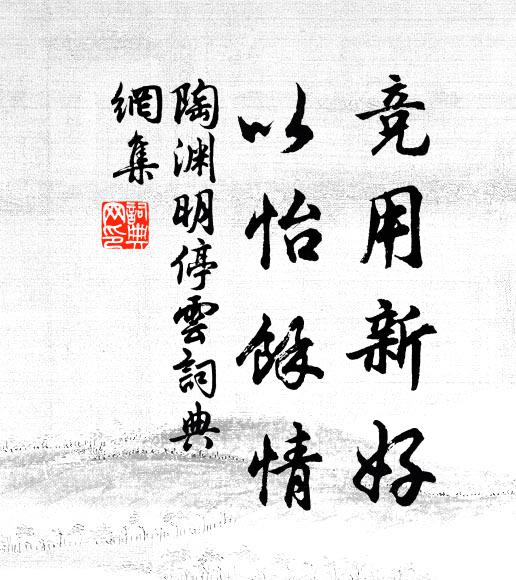 竞用新好
以怡餘情
陶渊明停雲詞典
網集
詞典
网印